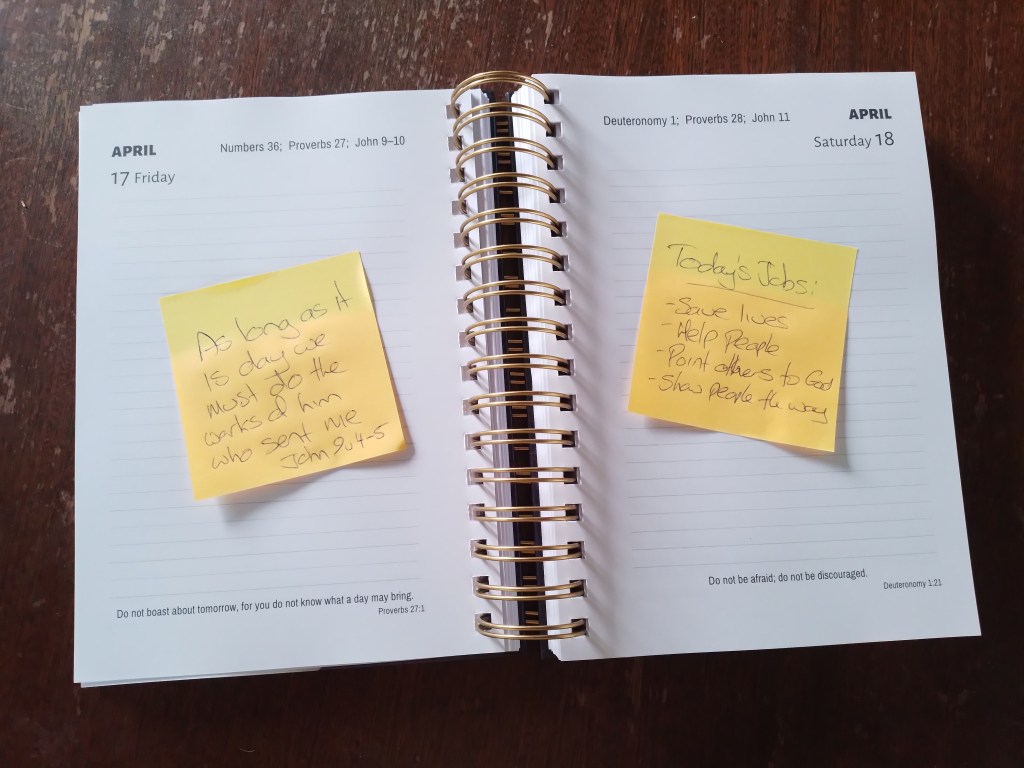 APRIL
Numbers 36; Proverbs 27; John 9–10
17 Friday
As long as it
is day we
must do the
works of him
who sent me
John 9:4-5
Do not boast about tomorrow, for you do not know what a day may bring.
Proverbs 27:1
Deuteronomy 1; Proverbs 28; John 11
APRIL
Saturday 18
Today's Jobs:
- Save lives
- Help people
- Point others to God
- Show people the way
Do not be afraid; do not be discouraged.
Deuteronomy 1:21